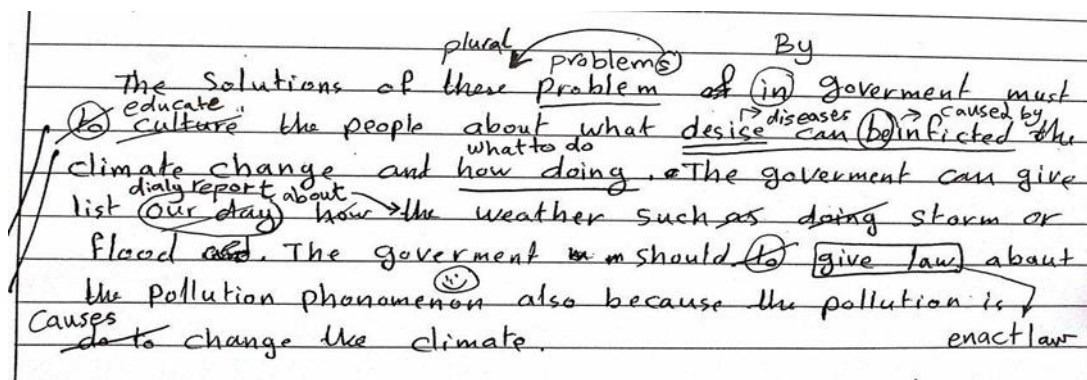 plural problems By
The Solutions of these problem of in goverment must
to educate
culture the people about what desice can be inficted the
diseases caused by
climate change and how doing. The goverment can give
what to do
list our day how the weather such as doing storm or
dialy report about
flood and. The goverment m should to give law about
the pollution phonomenon also because the pollution is
Causes
do to change the climate.
enact law